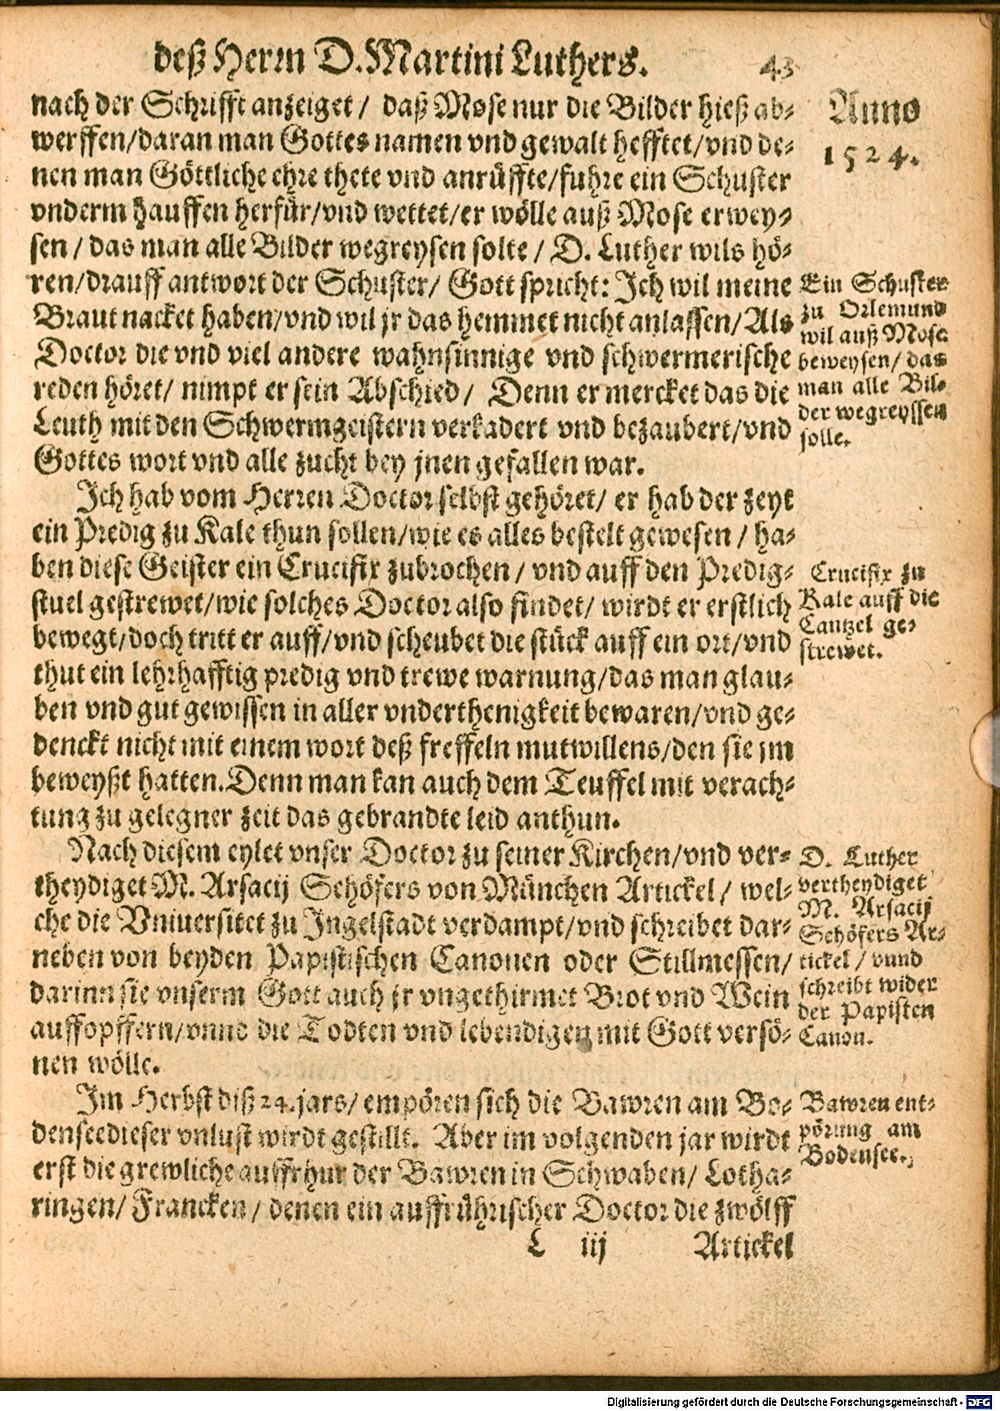 deß Herrn D. Martini Luthers.
43
nach der Schrifft anzeiget / daß Mose nur die Bilder hieß ab-
werffen/daran man Gottes namen vnd gewalt hefftet/vnd de-
nen man Göttliche ehre thete vnd anrüffte/fuhre ein Schuster
vnderm hauffen herfür/vnd wettet/er wölle auß Mose erwey-
sen / das man alle Bilder wegreysen solte / D. Luther wils hö-
ren/drauff antwort der Schuster/ Gott spricht: Ich wil meine
Braut nacket haben/vnd wil jr das hemmet nicht anlassen/Als
Doctor die vnd viel andere wahnsinnige vnd schwermerische
reden höret/ nimpt er sein Abschied / Denn er mercket das die
Leuth mit den Schwermgeistern verkadert vnd bezaubert/vnd
Gottes wort vnd alle zucht bey jnen gefallen war.
Ich hab vom Herren Doctor selbst gehöret/ er hab der zeyt
ein Predig zu Kale thun sollen/wie es alles bestelt gewesen / ha-
ben diese Geister ein Crucifix zubrochen / vnd auff den Predig-
stuel gestrewet/wie solches Doctor also findet/ wirdt er erstlich
bewegt/doch tritt er auff/vnd scheubet die stück auff ein ort/vnd
thut ein lehrhafftig predig vnd trewe warnung/das man glau-
ben vnd gut gewissen in aller vnderthenigkeit bewaren/vnd ge-
denckt nicht mit einem wort deß freffeln mutwillens/den sie jm
beweyßt hatten. Denn man kan auch dem Teuffel mit verach-
tung zu gelegner zeit das gebrandte leid anthun.
Nach diesem eylet vnser Doctor zu seiner Kirchen/vnd ver-
theydiget M. Arsacij Sehöfers von München Artickel / wel-
che die Vniuersitet zu Ingelstadt verdampt/vnd schreibet dar-
neben von beyden Papistischen Canonen oder Stillmessen/
darinn sie vnserm Gott auch jr vngethirmet Brot vnd Wein
auffopffern/vnnd die Todten vnd lebendigen mit Gott versö-
nen wölle.
Im Herbst diß 24. jars/ empören sich die Bawren am Bo-
densee dieser vnlust wirdt gestillt. Aber im volgenden jar wirdt
erst die grewliche auffrhur der Bawren in Schwaben/ Lotha-
ringen/ Francken / denen ein auffrührischer Doctor die zwölff
L iij
Artickel
Anno
1524.
Ein Schuster
zu Orlemund
wil auß Mose
beweysen/ das
man alle Bil-
der wegreyssen
solle.
Crucifix zu
Kale auff die
Cantzel ge-
strewet.
D. Luther
vertheydiget
M. Arsacij
Sehöfers Ar-
tickel / vnnd
schreibt wider
der Papisten
Canon.
Bawren ent-
pörung am
Bodensee.
Digitalisierung gefördert durch die Deutsche Forschungsgemeinschaft - DFG